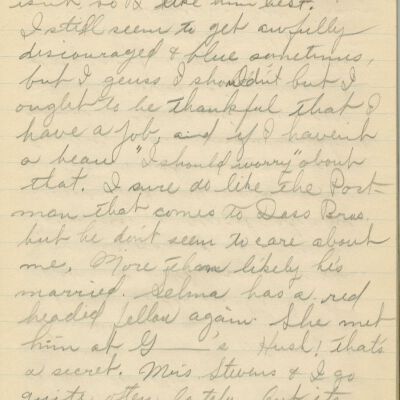 isn't, so I like him best.
I still seem to get awfully
discouraged & blue sometimes,
but I geuss I shouldn't but I
ought to be thankful that I
have a job, and if I haven't
a beau "I should worry" about
that. I sure do like the Post-
man that comes to Dass Bros.
but he don't seem to care about
me, More than likely he's
married. Selma has a red
headed fellow again. She met
him at G——'s Hush! that's
a secret. Mrs Stevens & I go
quite often lately, but it's